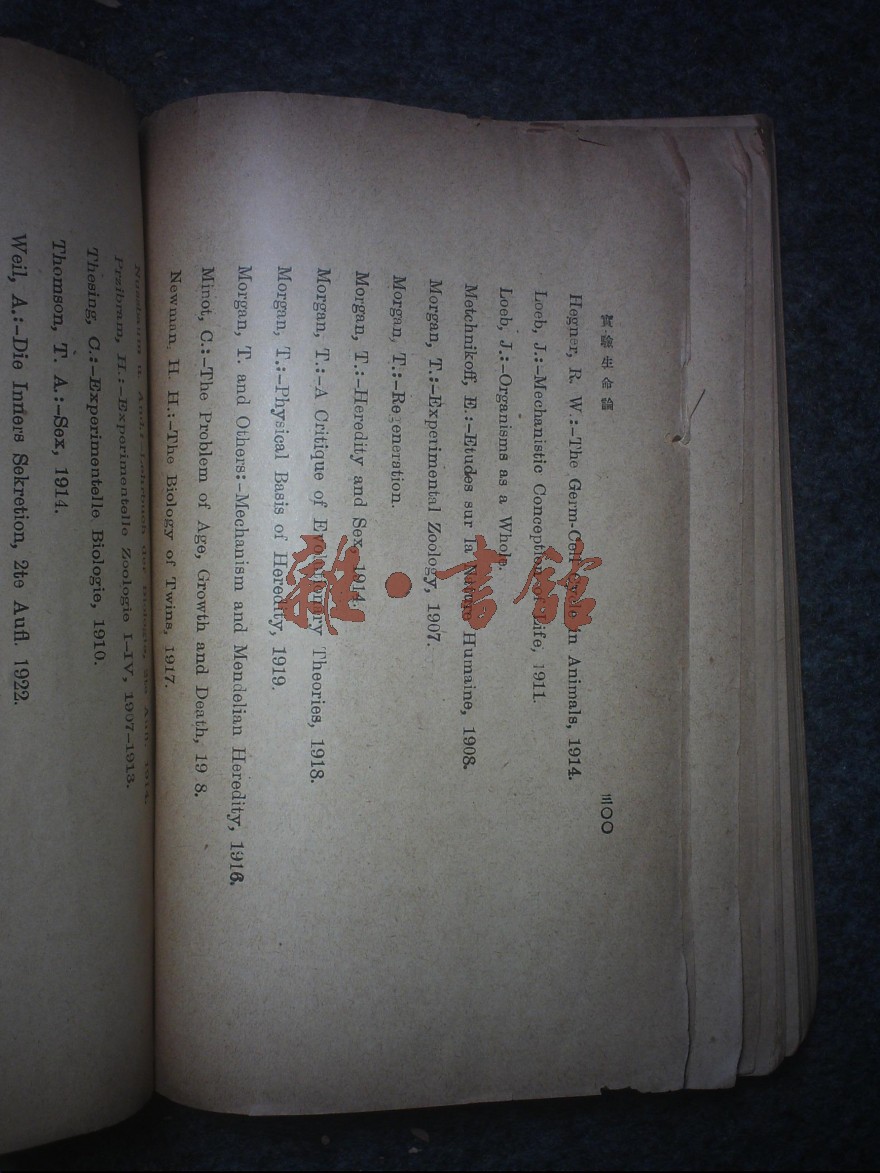 實驗生命論
三〇〇
Hegner, R. W.:-The Germ-Cell Cycle in Animals, 1914.
Loeb, J.:-Mechanistic Conception of Life, 1911.
Loeb, J.:-Organisms as a Whole.
Metchnikoff, E.:-Etudes sur la Nature Humaine, 1908.
Morgan, T.:-Experimental Zoology, 1907.
Morgan, T.:-Regeneration.
Morgan, T.:-Heredity and Sex, 1914.
Morgan, T.:-A Critique of Evolutionary Theories, 1918.
Morgan, T.:-Physical Basis of Heredity, 1919.
Morgan, T. and Others:-Mechanism and Mendelian Heredity, 1916.
Minot, C.:-The Problem of Age, Growth and Death, 19 8.
Newman. H. H.:-The Biology of Twins, 1917.
Lehrbuch der Biologie, 2te Aufl. 1914.
Przibram, H.:-Experimentelle Zoologie I-IV, 1907-1913.
Thesing, C.:-Experimentelle Biologie, 1910.
Thomson, T. A.:-Sex, 1914.
Weil, A.:-Die Inners Sekretion, 2te Aufl. 1922.
雜·書館